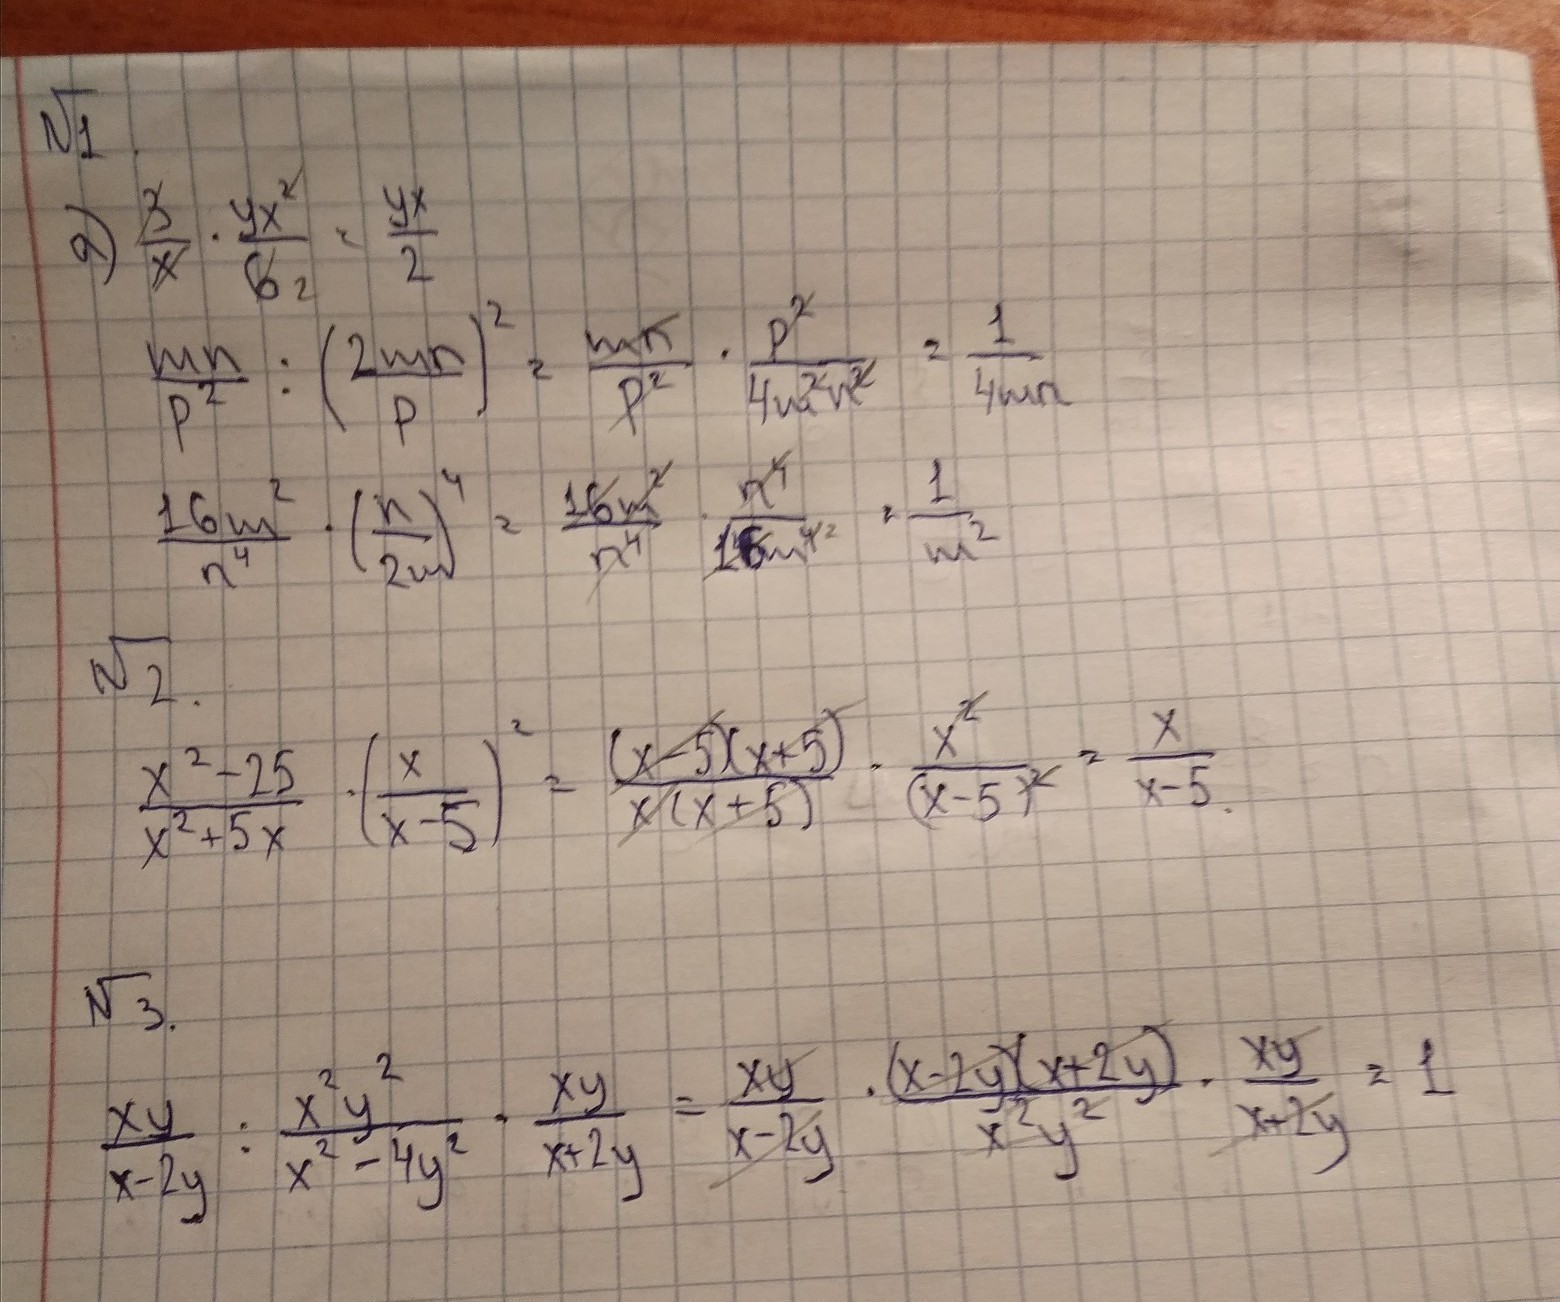 №1.
а) 3/x · yx²/6 2 = yx/2
mn/p² : (2mn/p)² = mn/p² · p²/4m²n² = 1/4mn
16m²/n⁴ · (n/2m)⁴ = 16m²/n⁴ · n⁴/16m⁴ 2 = 1/m²
№2.
x²-25/x²+5x · (x/x-5)² = (x-5)(x+5)/x(x+5) · x²/(x-5)² = x/x-5.
№3.
xy/x-2y : x²y²/x²-4y² · xy/x+2y = xy/x-2y · (x-2y)(x+2y)/x²y² · xy/x+2y = 1